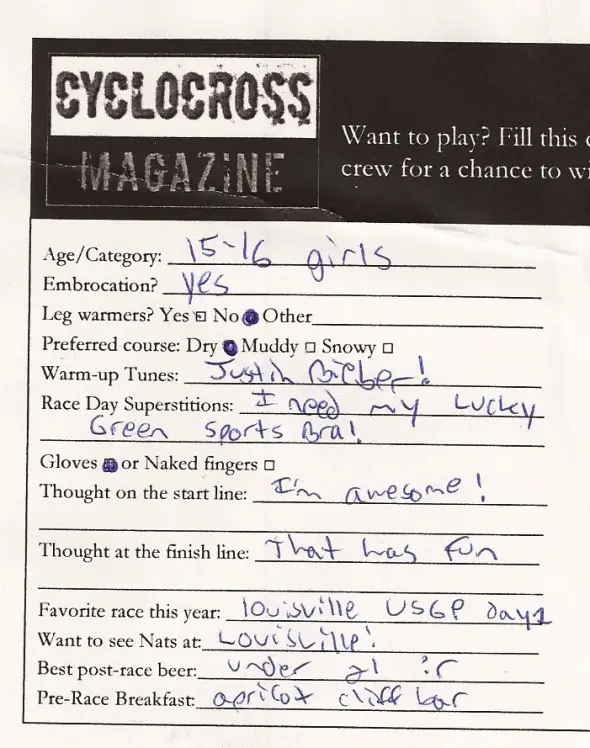 CYCLOCROSS
MAGAZINE
Want to play? Fill this
crew for a chance to wi
Age/Category: 15-16 girls
Embrocation? yes
Leg warmers? Yes No Other
Preferred course: Dry Muddy Snowy
Warm-up Tunes: Justin Bieber!
Race Day Superstitions: I need my Lucky
Green Sports Bra!
Gloves or Naked fingers
Thought on the start line: I'm awesome!
Thought at the finish line: That was fun
Favorite race this year: louisville USGP Day1
Want to see Nats at: Louisville!
Best post-race beer: under 21 :(
Pre-Race Breakfast: apricot cliff bar